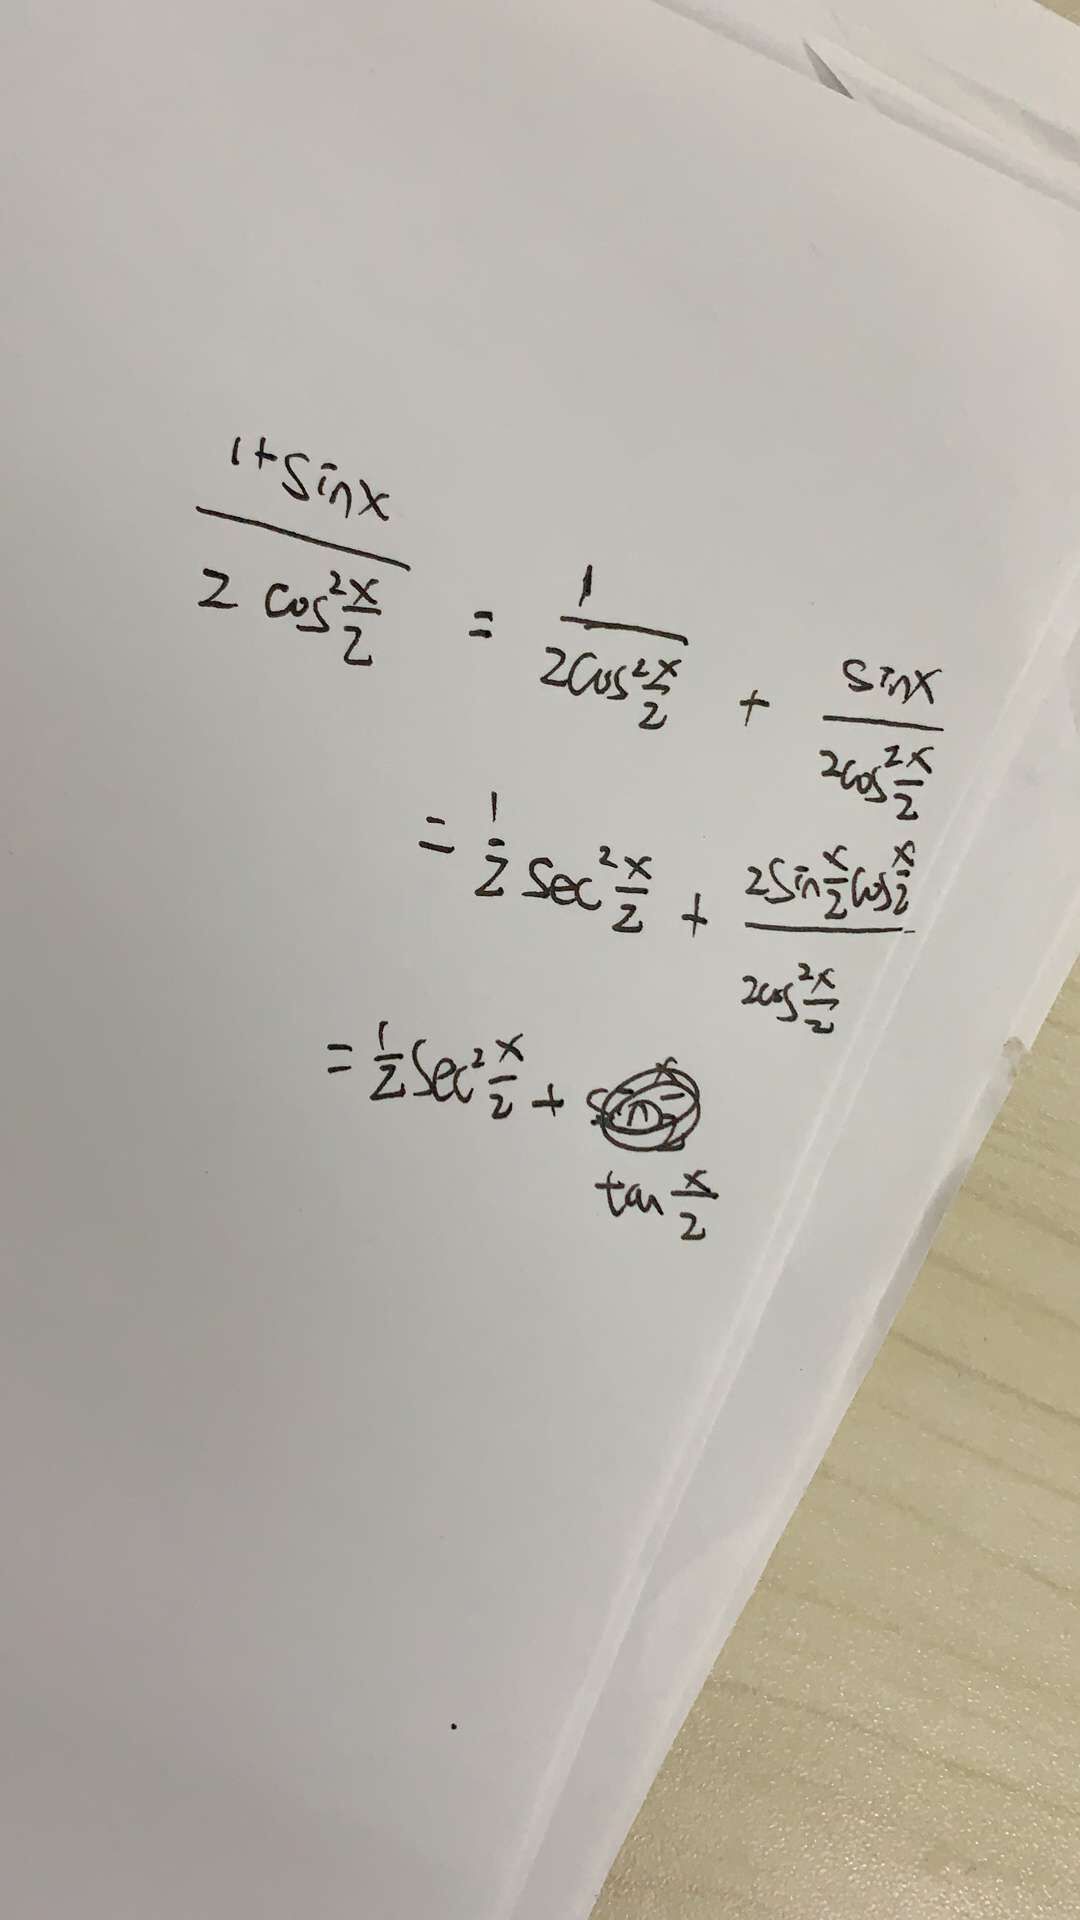 (1+sinx)/(2cos²(x/2)) = 1/(2cos²(x/2)) + sinx/(2cos²(x/2))
= 1/2 sec²(x/2) + (2sin(x/2)cos(x/2))/(2cos²(x/2))
= 1/2 sec²(x/2) +
tan(x/2)